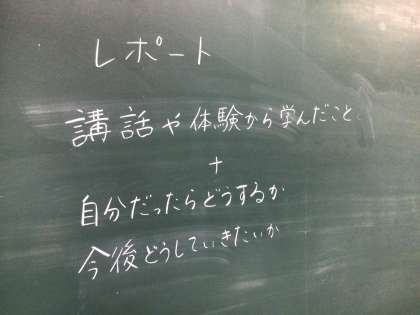 レポート
講話や体験から学んだこと
+
自分だったらどうするか
今後どうしていきたいか